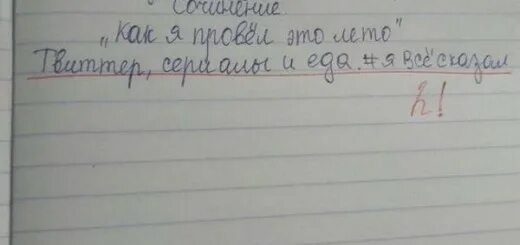 Сочинение
„Как я провёл это лето"
Твиттер, сериалы и еда. #я всё сказал
2!